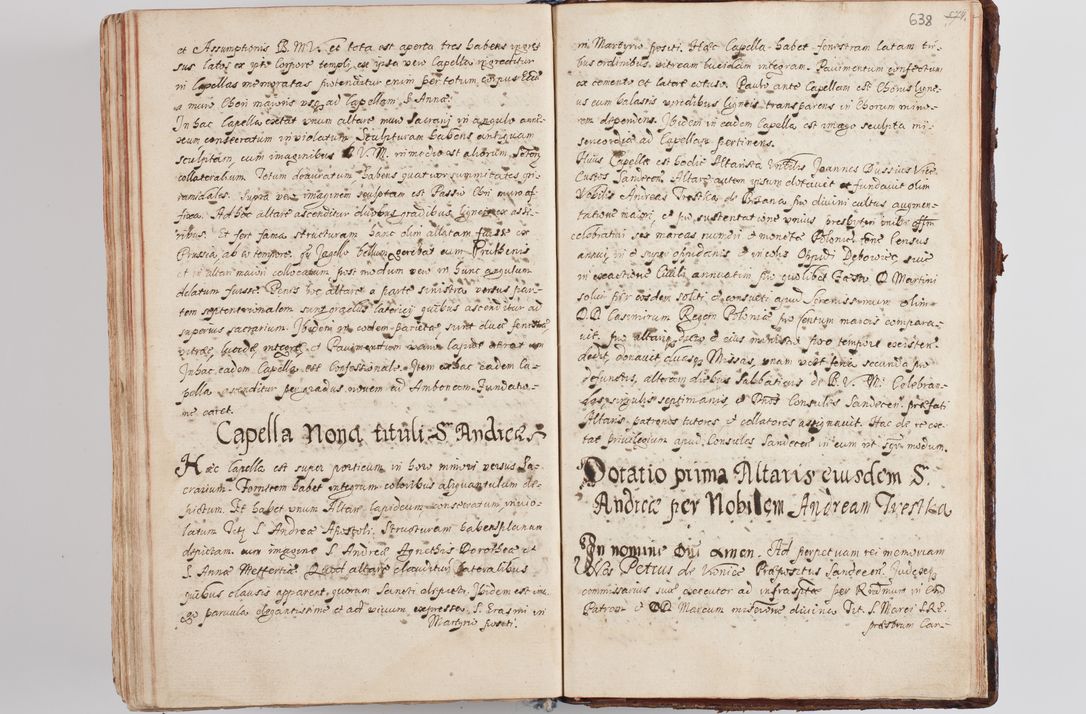 et Assumptionis B. M.V. et tota est aperta tres habens ingres
sus latos ex parte Corpore templi, et ipsa vero Capella ingreditur
in Capellas memoratas protenditur enim per totum corpus
a muro Chori maioris usq. ad Capellam S. Annæ.
In hac Capella extat unum altare muro Sacrarij in angulo anne-
xum consecratum inviolatum Sculpturam habens antiquam
sculptam, cum imaginibus B. V. M. in medio est aliorum
collateralium. Totum deauratum habens quatuor summitates
ramidales. Supra vero imaginem sculptam est Passio Chri muro af
fixa. Ad hoc altare ascenditur duobus gradibus ligneis ex asse-
ribus. Et fert fama structuram hanc olim allatam fuisse ex
Prussia, ab eo tempore, quo Jagello bellum gerebat cum Pruthenis
et in altari maiori collocatum post modum vero in hunc angulum
delatum fuisse. Penes hoc altare a parte sinistra versus par-
tem septentrionalem sunt gradus lateritij quibus ascenditur ad
superius sacrarium. Ibidem in eodem pariete sunt duæ fenestræ
vitreæ, lucidæ integræ, et Pavimentum
In hac eadem Capella est Confessionale. Item ex hac eadem Ca-
pella ascenditur per gradus novem ad Ambonem. Fundatio-
ne caret.
Capella Nona tituli S. Andreæ
Hæc Capella est super porticum in horo minori versus Sa-
crarium. Fornicem habet integrum coloribus aliquantulum de-
pictum. Et habet unum Altare lapideum consecratum invio-
latum Titi S. Andreæ Apostoli. Structuram habens planam
depictam. cum imagine S. Andreæ Agnetis Dorotheæ et
S. Annæ Mettertiæ. Quod altare clauditur lateralibus
quibus clausis apparent quorum Sancti depicti. Ibidem est ima
go parvula elegantissime et ad vivum expressa, S. Erasmi in
Martyrio positi.
638
m Martyrio positi. Hæc Capella habet fenestram latam tri-
bus ordinibus vitream lucidam integram. Pavimentum confectum
ex cemento et latere cotuso. Paulo ante Capellam est Chorus ligne-
us cum balasris viridibus ligneis transparens in Chorum mino-
rem dependens. Ibidem in eadem Capella est imago sculpta mi-
sericordiæ ad Capellam pertinens.
Huius Capellæ est hodie Altarista Vnbilis Joannes Dussius Vice-
Custos Sandecen. Altare autem ipsum dotavit et fundavit olim
Nobilis Andreas Trestka de Brzana pro divini cultus augmen-
tatione maiori, et pro sustentatione unius presbyteri
celebraturi sex marcas nummi et monetæ Polonicæ Census
annui, in et super oppidanis et incolis Oppidi Dębowiec, sive
in exactione Civili annuatim pro quolibet Festo D. Martini
solvi per eosdem soliti et consueti apud Serenissimum olim
D.D. Casimirum Regem Poloniæ pro centum marcis compara-
vit. Pro altari huius et eius ministro pro tempore existen
dedit, donavit duasq. Missas, unam vero feria secunda pro
defunctis, alteram diebus Sabbativis de B. V. M. Celebran-
das singulis septimanis, et Dnos Consules Sandecen. præfati
Altaris patronos tutores, et collatores assignavit. Hac de re ex-
tat privilegium apud Consules Sandecen in eum qui seqr modum.
Dotatio prima Altaris eiusdem S.
Andreæ per Nobilem Andream Trestka
In nomine Dni Amen. Ad perpetuam rei memoriam
Nos Petrus de Præpositus Sandecen. Judex,
commissarius sive executor ad infraspta per Rndmum in Chro
Patrem et DD Marcum miseraone divina Tit. S. Marci S.R.E.
præsbrum Car-